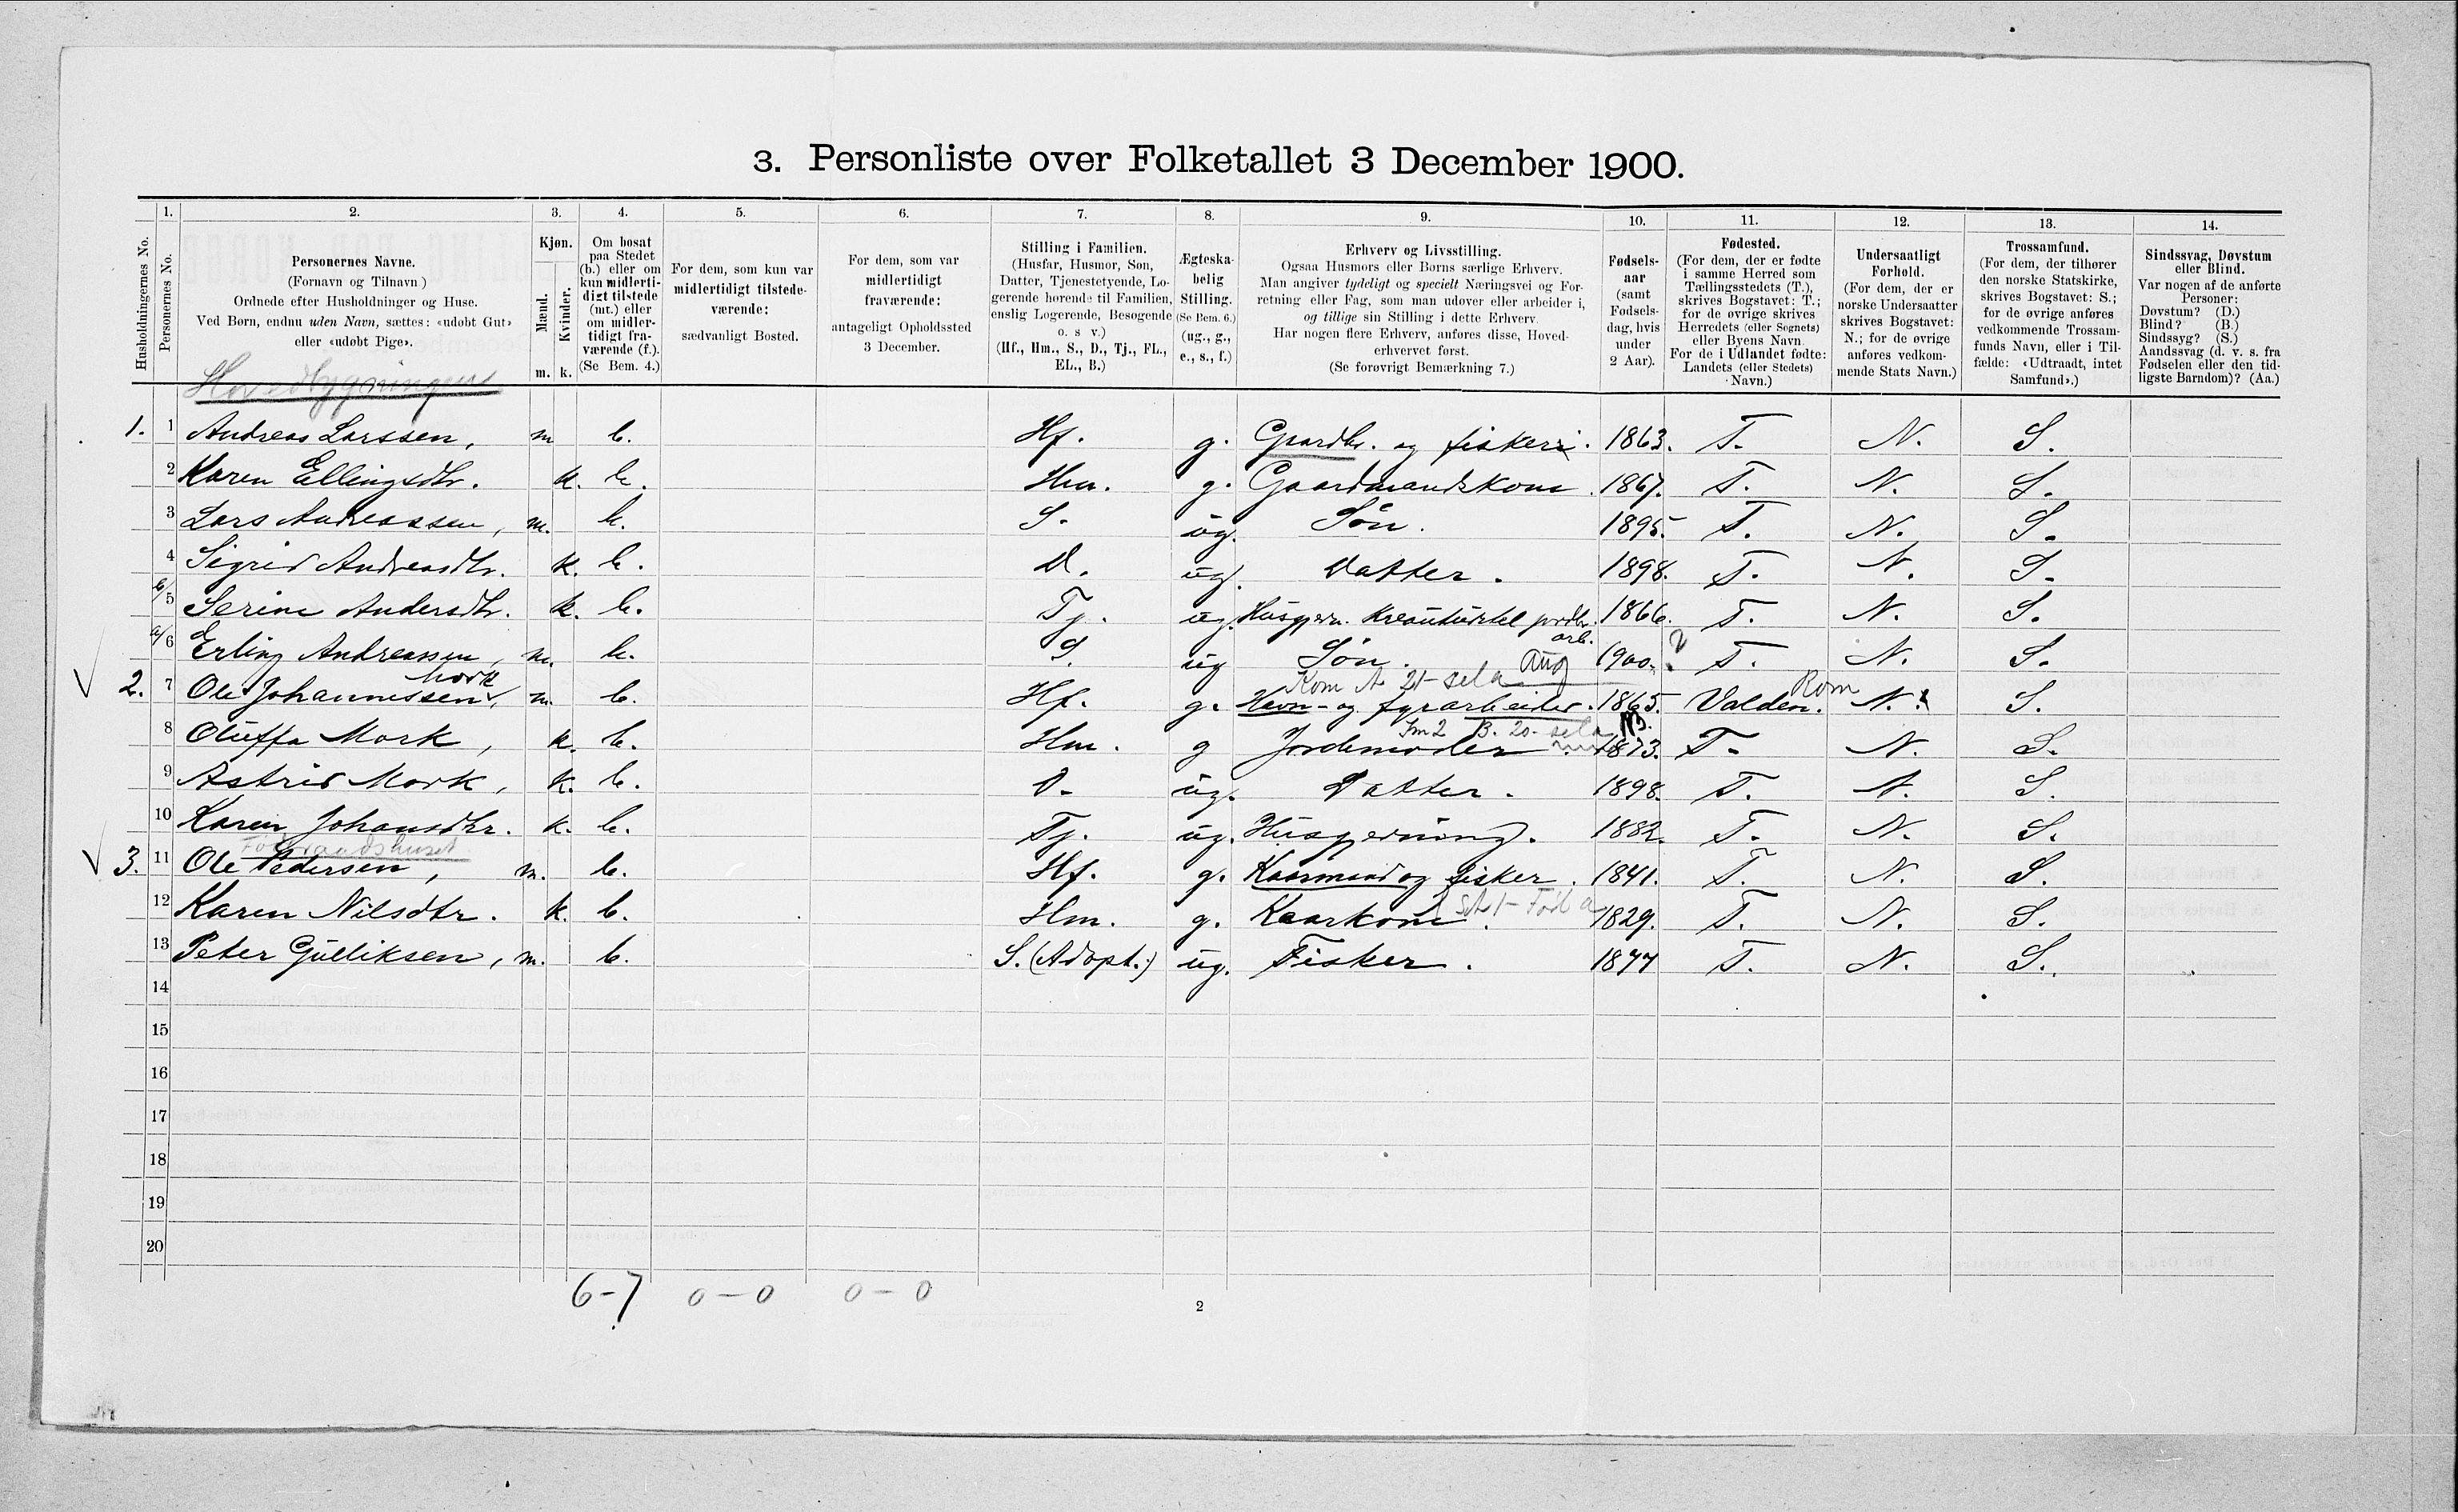 3. Personliste over Folketallet 3 December 1900.
1. 2. 3. 4. 5. 6. 7. 8. 9. 10. 11. 12. 13. 14.
Husholdningernes No.
Personernes No.
Personernes Navne.
(Fornavn og Tilnavn.)
Ordnede efter Husholdninger og Huse.
Ved Børn, endnu uden Navn, sættes: «udøbt Gut»
eller «udøbt Pige».
Kjøn.
Mænd.
Kvinder.
m. k.
Om bosat
paa Stedet
(b.) eller om
kun midlerti-
digt tilstede
(mt.) eller
om midler-
tidigt fra-
værende (f.).
(Se Bem. 4.)
For dem, som kun var
midlertidigt tilstede-
værende:
sædvanligt Bosted.
For dem, som var
midlertidigt
fraværende:
antageligt Opholdssted
3 December.
Stilling i Familien.
(Husfar, Husmor, Søn,
Datter, Tjenestetyende, Lo-
gerende hørende til Familien,
enslig Logerende, Besøgende
o. s v.)
(Hf., Hm., S., D., Tj., FL.,
EL., B.)
Ægteska-
belig
Stilling.
(Se Bem. 6.)
(ug., g.,
e., s., f.)
Erhverv og Livsstilling.
Ogsaa Husmors eller Børns særlige Erhverv.
Man angiver tydeligt og specielt Næringsvei og For-
retning eller Fag, som man udøver eller arbeider i,
og tillige sin Stilling i dette Erhverv.
Har nogen flere Erhverv, anføres disse, Hoved-
erhvervet først.
(Se forøvrigt Bemærkning 7.)
Fødsels-
aar
(samt
Fødsels-
dag, hvis
under
2 Aar).
Fødested.
(For dem, der er fødte
i samme Herred som
Tællingsstedets (T.),
skrives Bogstavet: T.;
for de øvrige skrives
Herredets (eller Sognets)
eller Byens Navn.
For de i Udlandet fødte:
Landets (eller Stedets)
Navn.)
Undersaatligt
Forhold.
(For dem, der er
norske Undersaatter
skrives Bogstavet:
N.; for de øvrige
anføres vedkom-
mende Stats Navn.)
Trossamfund.
(For dem, der tilhører
den norske Statskirke,
skrives Bogstavet: S.;
for de øvrige anføres
vedkommende Trossam-
funds Navn, eller i Til-
fælde: «Udtraadt, intet
Samfund».)
Sindssvag, Døvstum
eller Blind.
Var nogen af de anførte
Personer:
Døvstum? (D.)
Blind? (B.)
Sindssyg? (S.)
Aandssvag (d. v. s. fra
Fødselen eller den tid-
ligste Barndom)? (Aa.)
Hovedbygningen
1. 1 Andreas Larssen, m b. Hf. g. Gaardbr. og fiskeri. 1863. T. N. S.
2 Karen Ellingsdtr. k. b. Hm. g. Gaardmandskone. 1867. T. N. S.
3 Lars Andreassen, m. b. S. ug. Søn. 1895. T. N. S.
4 Sigrid Andreasdtr. k. b. D. ug. Datter. 1898. T. N. S.
b/5 Serine Andersdtr. k. b. Tj. ug. Husgjern. Kreaturstel jordbr. 1866. T. N. S.
arb.
a/6 Erling Andreassen, m. b. S. ug Søn. Aug 1900. 2 T. N. S.
Mork
2. 7 Ole Johannessen, m. b. Hf. g. Havn- og fyrarbeider. 1865. Volden. Rom N. S.
8 Oluffa Mork, k. b. Hm. g Jordemoder 1873. T. N. S.
9 Astrid Mork, k. b. D. ug. Datter. 1898. T. N. S.
10 Karen Johansdtr. k. b. Tj. ug. Husgjerning. 1882. T. N. S.
Føderaadshuset
3. 11 Ole Pedersen, m. b. Hf. g. Kaarmand og fisker. 1841. T. N. S.
12 Karen Nilsdtr. k. b. Hm. g. Kaarkone. 1829. T. N. S.
13 Peter Gulliksen, m. b. S. (Adopt.) ug. Fisker. 1877 T. N. S.
14
15
16
17
18
19
20
6-7 0-0 0-0
2